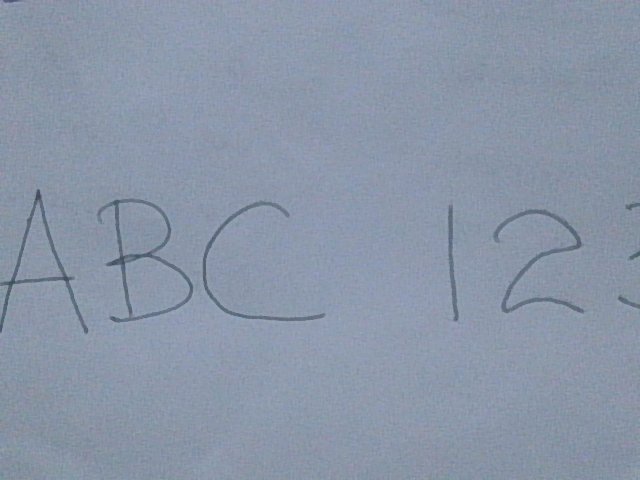 ABC 123